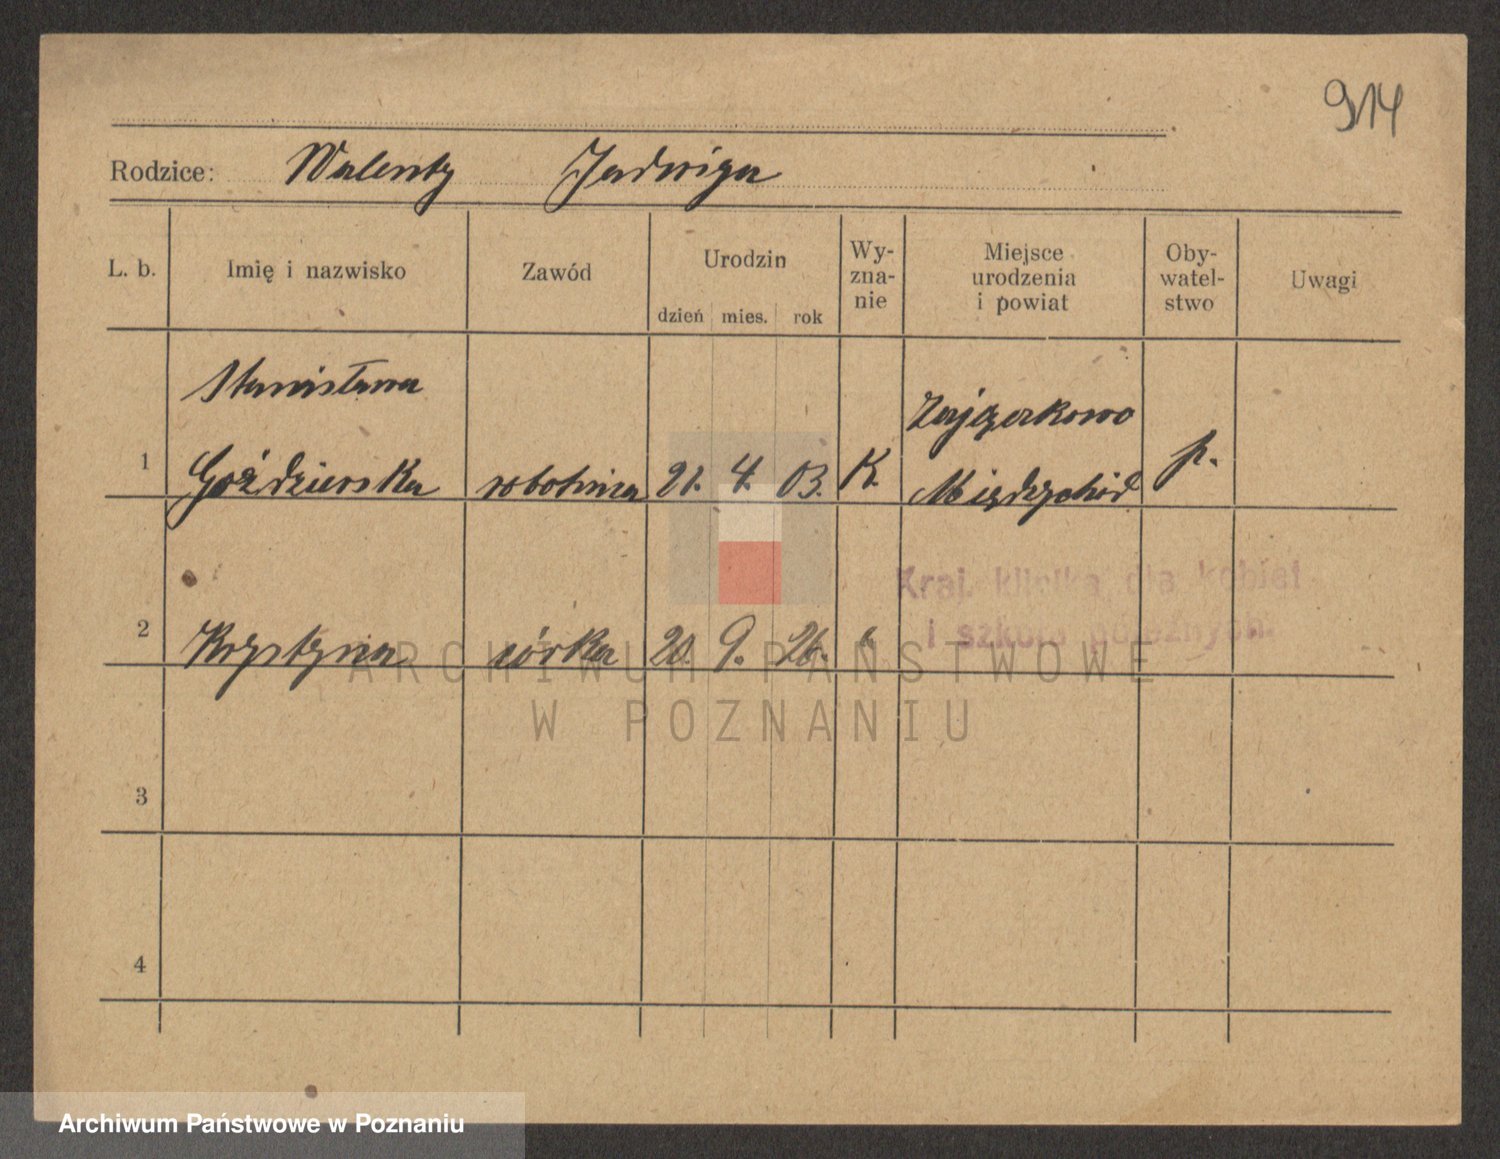 914
Rodzice: Walenty Jadwiga
L. b. Imię i nazwisko Zawód Urodzin dzień mies. rok Wy-zna-nie Miejsce urodzenia i powiat Oby-watel-stwo Uwagi
Stanisława
Zajączkowo
1 Goździewska robotnica 21. 4. 03. K. Międzychód p.
Kraj. klinika dla kobiet
i szkoła położnych.
2 Krystyna córka 20. 9. 26. "
ARCHIWUM PAŃSTWOWE
W POZNANIU
3
4
Archiwum Państwowe w Poznaniu